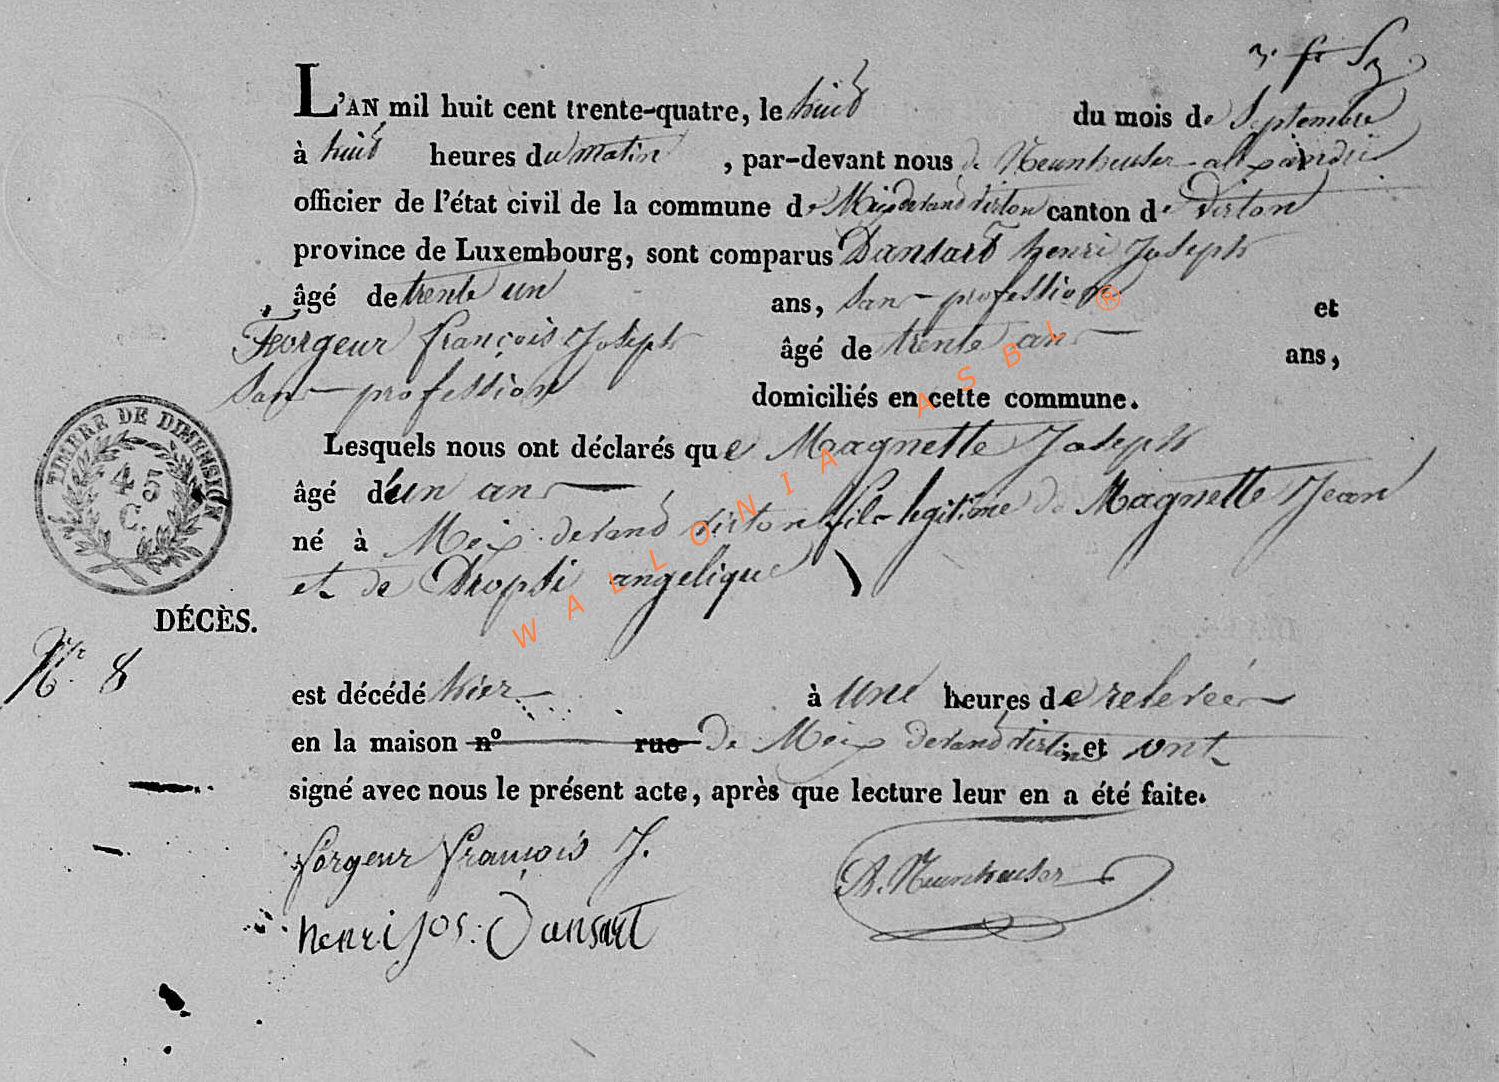 L'AN mil huit cent trente-quatre, le huit du mois de Septembre
à huit heures du matin, par-devant nous de Neunheuser alexandre
officier de l'état civil de la commune de Meix devand virton canton de virton
province de Luxembourg, sont comparus Dansart henri Joseph
âgé de trente un ans, sans profession et
Feorgeur françois Joseph âgé de trente ans ans,
sans profession domiciliés en cette commune.
Lesquels nous ont déclarés que Maagnette Joseph
âgé d'un ans
né à Meix devand virton fils legitime de Magnette Jean
et de Dropsi angelique
TIMBRE DE DIMENSION
45
C.
DÉCÈS.
N.r 8
est décédé hier à une heures de relevée
en la maison nº rue de Meix devand virton; et ont
signé avec nous le présent acte, après que lecture leur en a été faite.
forgeur françois J.
A. Neunheuser
henri jos. Dansart
WALLONIA ASBL ®